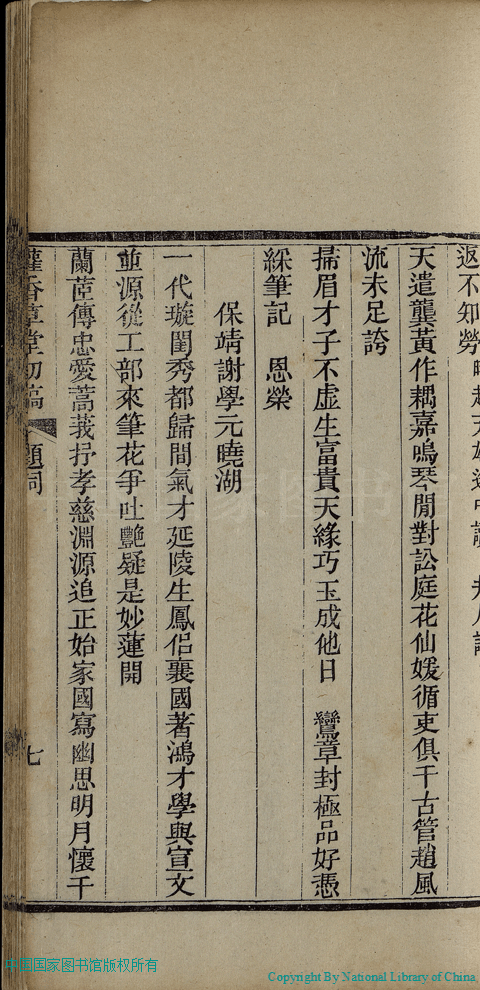 返不知勞
天遣龔黃作耦嘉鳴琴閒對訟庭花仙媛循吏俱千古管趙風
流未足誇
掃眉才子不虛生富貴天緣巧玉成他日 鸞章封極品好憑
綵筆記 恩榮
保靖謝學元曉湖
一代璇閨秀都歸間氣才延陵生鳳侶襄國著鴻才學與宣文
並源從工部來筆花爭吐艷疑是妙蓮開
蘭茝傳忠愛蒿莪抒孝慈淵源追正始家國寫幽思明月懷千
香草堂初稿
題詞
七
中国国家图书馆版权所有
Copyright By National Library of China